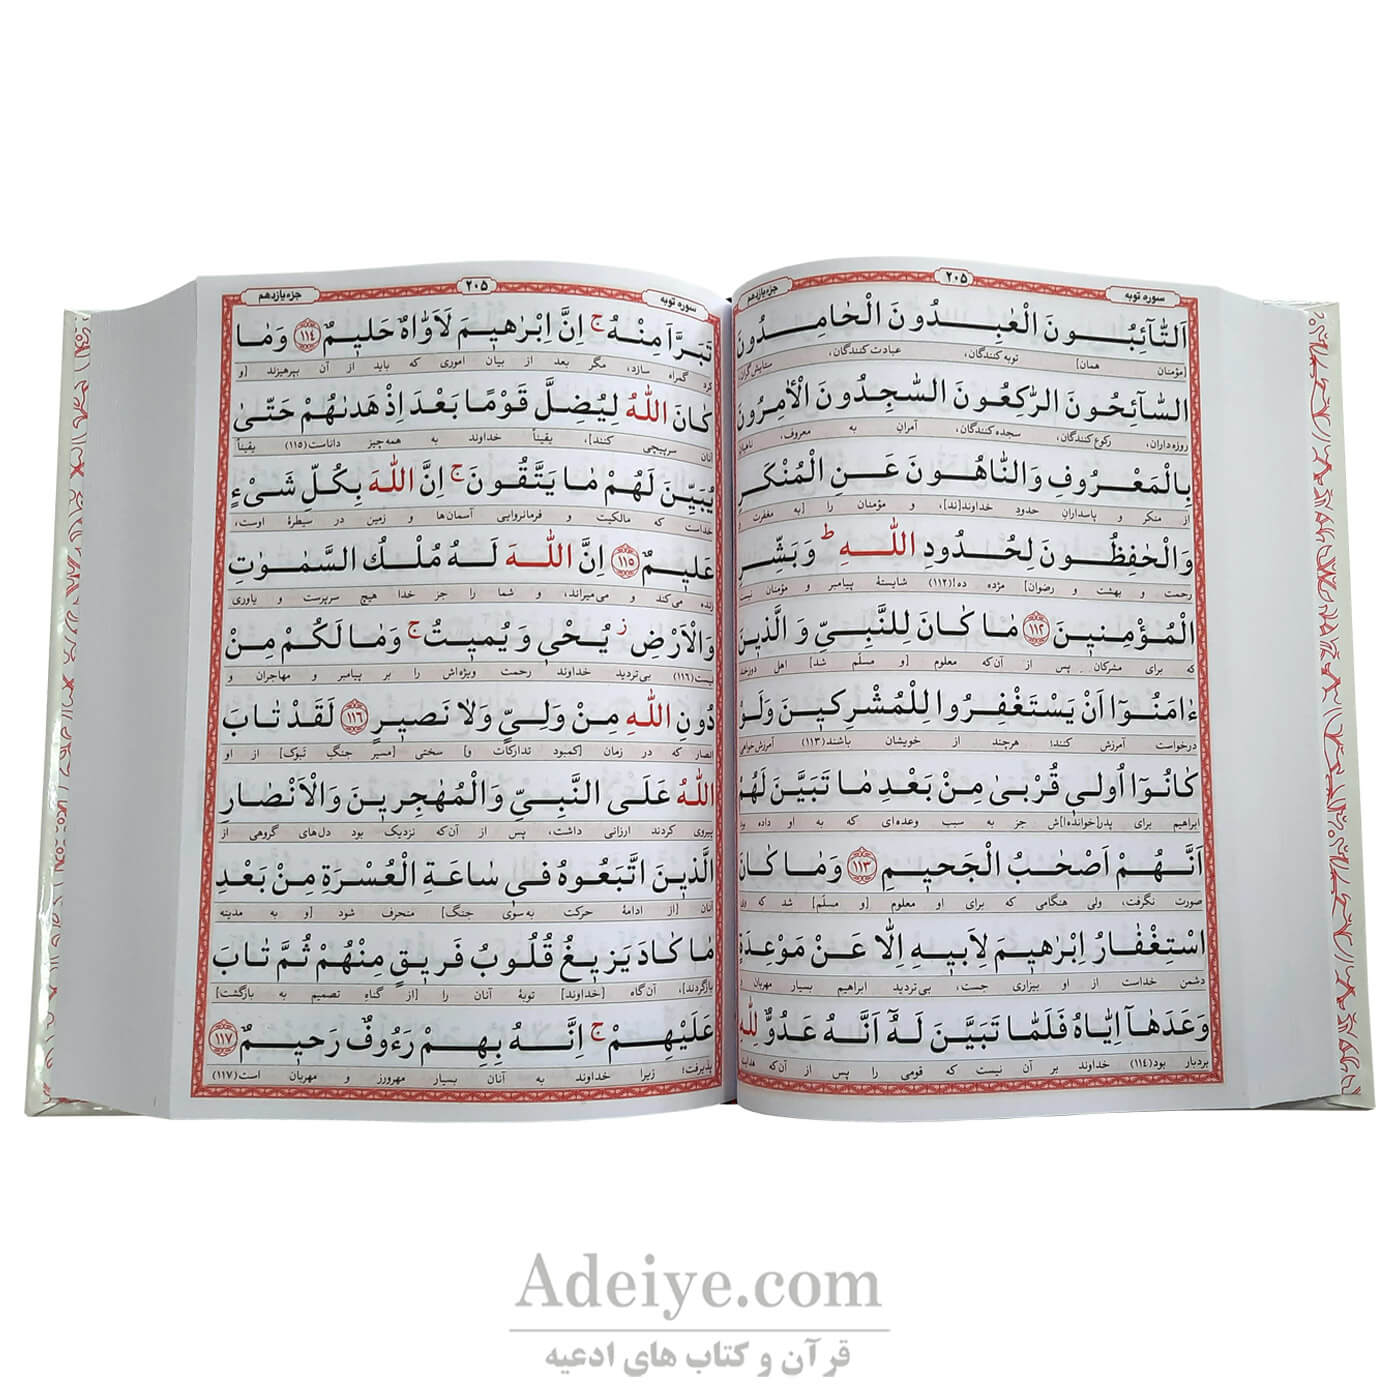 سوره توبه
۲۰۵
جزء یازدهم
اَلتّٰٓائِبُونَ الْعٰبِدُونَ الْحٰامِدُونَ
[مؤمنان همان] توبه‌کنندگان، عبادت‌کنندگان، ستایش‌گران،
السّٰٓائِحُونَ الرّٰکِعُونَ السّٰجِدُونَ الْاٰمِرُونَ
روزه‌داران، رکوع‌کنندگان، سجده‌کنندگان، آمرانِ به معروف، ناهیان
بِالْمَعْرُوفِ وَالنّٰاهُونَ عَنِ الْمُنْکَرِ
از منکر و پاسدارانِ حدودِ خداوند[ند]، و مؤمنان را [به مغفرت و
وَالْحٰفِظُونَ لِحُدُودِ اللّٰهِ ط وَ بَشِّرِ
رحمت و بهشت و رضوان] مژده ده!(۱۱۲) شایستهٔ پیامبر و مؤمنان نیست
الْمُؤْمِنینَ ۱۱۲ مٰا کٰانَ لِلنَّبِیِّ وَ الَّذینَ
که برای مشرکان پس از آن‌که معلوم [و مسلّم شد] اهل دوزخند
ءٰامَنُوٓا اَنْ یَسْتَغْفِرُوا لِلْمُشْرِکینَ وَلَوْ
درخواست آمرزش کنند؛ هرچند از خویشان باشند(۱۱۳) آمرزش‌خواهی
کٰانُوٓا اُولی قُرْبیٰ مِنْ بَعْدِ مٰا تَبَیَّنَ لَهُمْ
ابراهیم برای پدر[خوانده]ش جز به سبب وعده‌ای که به او داده بود
اَنَّهُمْ اَصْحٰبُ الْجَحیمِ ۱۱۳ وَمٰا کٰانَ
صورت نگرفت، ولی هنگامی که برای او معلوم [و مسلّم] شد که وی
اسْتِغْفٰارُ اِبْرٰهیمَ لِاَبیهِ اِلّٰا عَنْ مَوْعِدَةٍ
دشمن خداست از او بیزاری جست، بی‌تردید ابراهیم بسیار مهربان و
وَعَدَهٰآ اِیّٰاهُ فَلَمّٰا تَبَیَّنَ لَهُٓ اَنَّهُ عَدُوٌّ لِلّٰهِ
بردبار بود(۱۱۴) خداوند بر آن نیست که قومی را پس از آن‌که هدایت
سوره توبه
۲۰۵
جزء یازدهم
تَبَرَّاَ مِنْهُ ج اِنَّ اِبْرٰهیمَ لَاَوّٰاهٌ حَلیمٌ ۱۱۴ وَمٰا
کرد گمراه سازد، مگر بعد از بیان اموری که باید از آن بپرهیزند [و
کٰانَ اللّٰهُ لِیُضِلَّ قَوْمًا بَعْدَ اِذْ هَدٰىهُمْ حَتّیٰ
آنان سرپیچی کنند]، یقیناً خداوند به همه‌چیز داناست(۱۱۵) یقیناً
یُبَیِّنَ لَهُمْ مٰا یَتَّقُونَ ج اِنَّ اللّٰهَ بِکُلِّ شَیْءٍ
خداست که مالکیت و فرمانروایی آسمان‌ها و زمین در سیطرهٔ اوست،
عَلیمٌ ۱۱۵ اِنَّ اللّٰهَ لَهُ مُلْكُ السَّمٰوٰتِ
زنده می‌کند و می‌میراند، و شما را جز خدا هیچ سرپرست و یاوری
وَالْاَرْضِ ز یُحْیٖ وَ یُمیتُ ج وَمٰا لَکُمْ مِنْ
نیست(۱۱۶) بی‌تردید خداوند رحمت ویژه‌اش را بر پیامبر و مهاجران و
دُونِ اللّٰهِ مِنْ وَلِیٍّ وَلٰا نَصیرٍ ۱۱۶ لَقَدْ تٰابَ
انصار که در زمان [کمبود تدارکات و] سختی [مسیرِ جنگِ تَبوک] از او
اللّٰهُ عَلَی النَّبِیِّ وَالْمُهٰجِرینَ وَالْاَنْصٰارِ
پیروی کردند ارزانی داشت، پس از آن‌که نزدیک بود دل‌های گروهی از
الَّذینَ اتَّبَعُوهُ فی سٰاعَةِ الْعُسْرَةِ مِنْ بَعْدِ
آنان [از ادامهٔ حرکت به‌سوی جنگ] منحرف شود [و به مدینه
مٰا کٰادَ یَزیغُ قُلُوبُ فَریقٍ مِنْهُمْ ثُمَّ تٰابَ
بازگردند]، آن‌گاه [خداوند] توبهٔ آنان را [از گناهِ تصمیم به بازگشت]
عَلَیْهِمْ ج اِنَّهُ بِهِمْ رَءُوفٌ رَحیمٌ ۱۱۷
پذیرفت؛ زیرا خداوند به آنان بسیار مهرورز و مهربان است(۱۱۷)
Adeiye.com
قرآن و کتاب های ادعیه